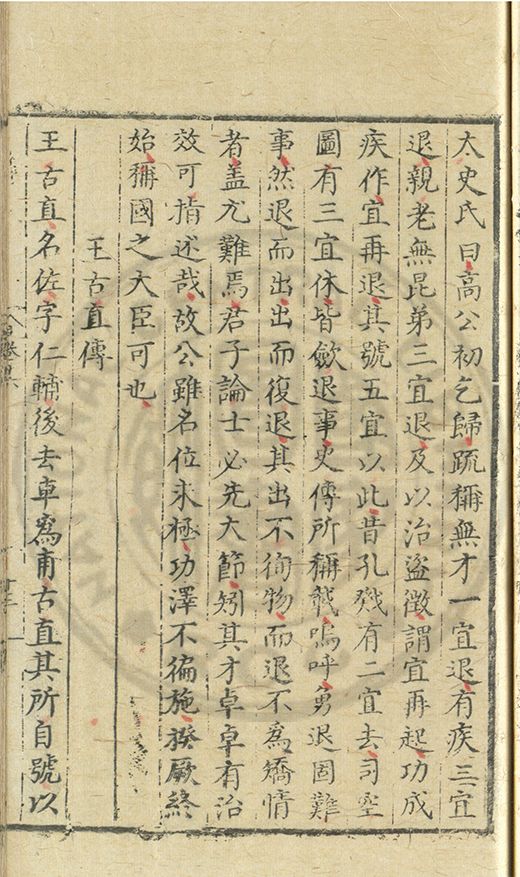 太史氏曰高公初乞歸疏稱無才一宜退有疾二宜
退親老無昆弟三宜退及以治盜徵謂宜再起功成
疾作宜再退其號五宜以此昔孔戣有二宜去司空
圖有三宜休皆歛退事史傳所稱載嗚呼勇退固難
事然退而出出而復退其出不徇物而退不為矯情
者盖尤難焉君子論士必先大節矧其才卓卓有治
效可指述哉故公雖名位未極功澤不徧施揆厥終
始稱國之大臣可也
王古直傳
王古直名佐字仁輔後去車爲甫古直其所自號以